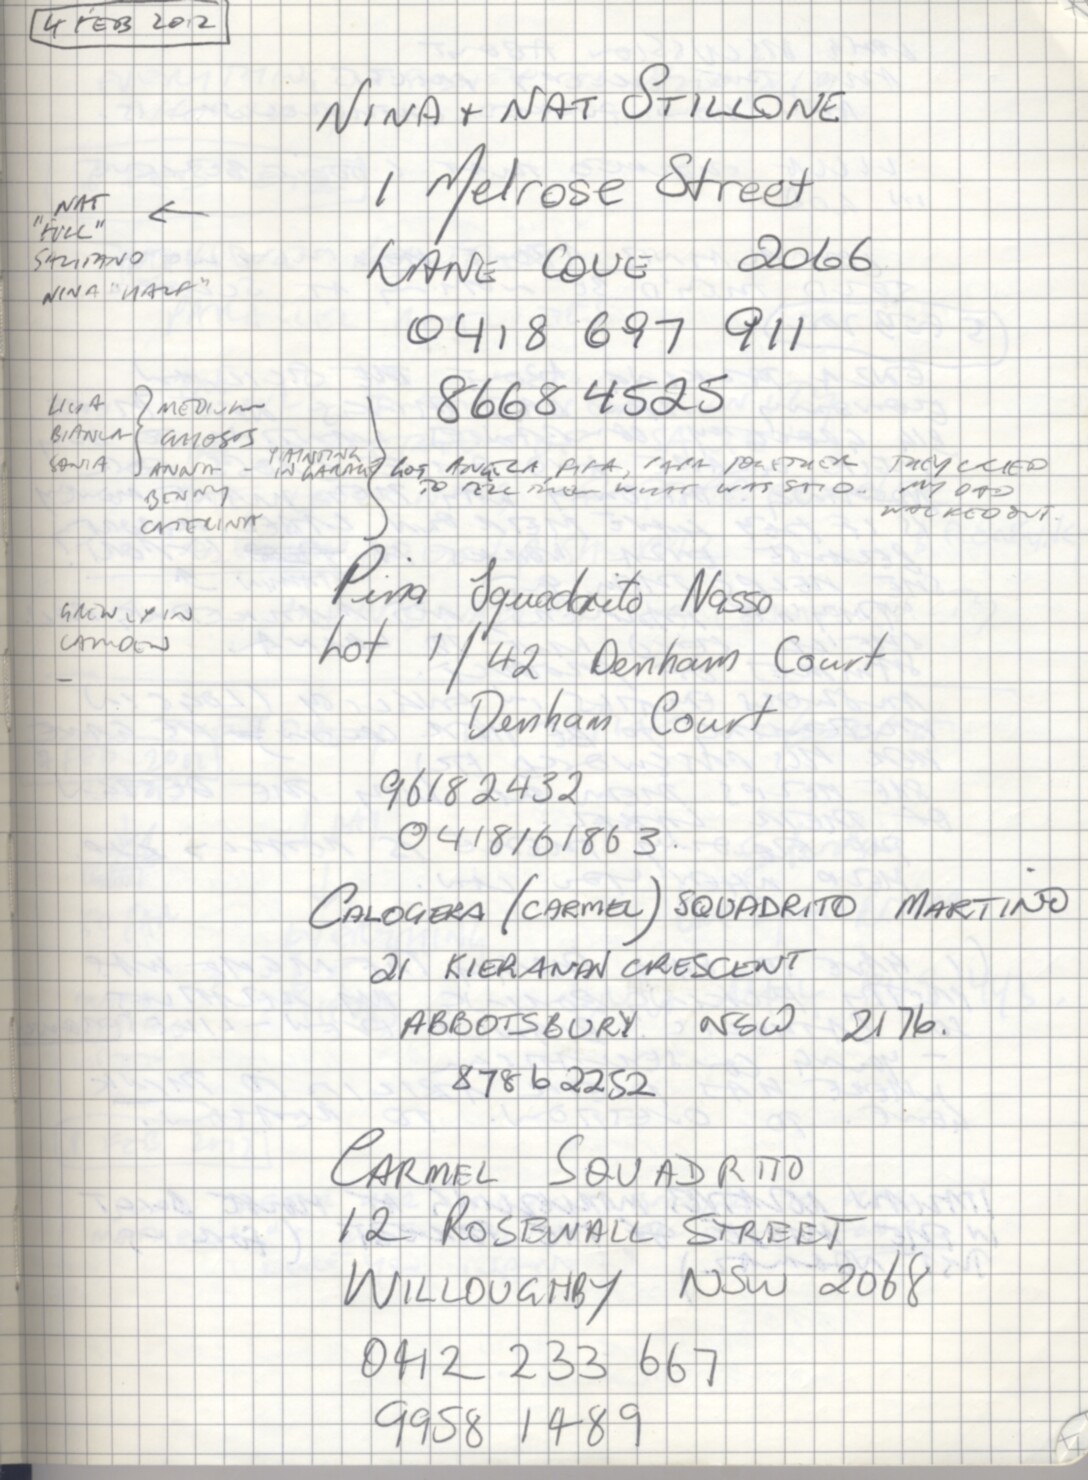 4 FEB 2012
NINA + NAT STILLONE
1 Melrose Street
LANE COVE 2066
0418 697 911
8668 4525
NAT ←
"FULL"
NINA "HALF"
BIANCA
SONIA
MEDIUM
GHOSTS
ANNA - PAINTING
IN GARAGE
BENNY
CATERINA
GOT ANGELA, PINA, TOGETHER THEY CRIED
TO TELL THEM WHAT WAS SAID. MY DAD
WALKED OUT.
Pina Squadrito Nasso
Lot 1/42 Denham Court
Denham Court
GREW UP IN
CAMDEN
-
96182432
0418161863.
CALOGERA (CARMEL) SQUADRITO MARTINO
21 KIERANAN CRESCENT
ABBOTSBURY NSW 2176.
87862252
CARMEL SQUADRITO
12 ROSEWALL STREET
WILLOUGHBY NSW 2068
0412 233 667
9958 1489